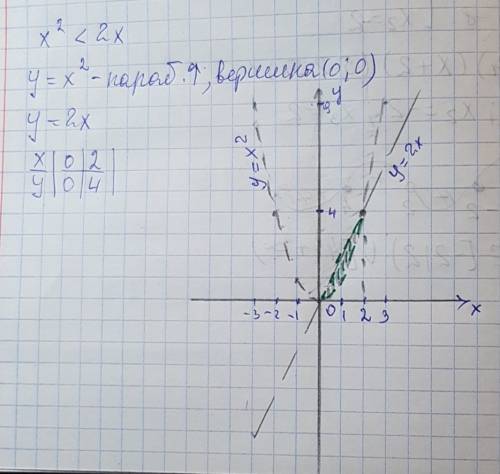 x² < 2x
y = x² - параб. ↑; вершина (0; 0)
y = 2x
x | 0 | 2 |
y | 0 | 4 |
y
9
y = x²
y = 2x
4
-3 -2 -1 0 1 2 3 x